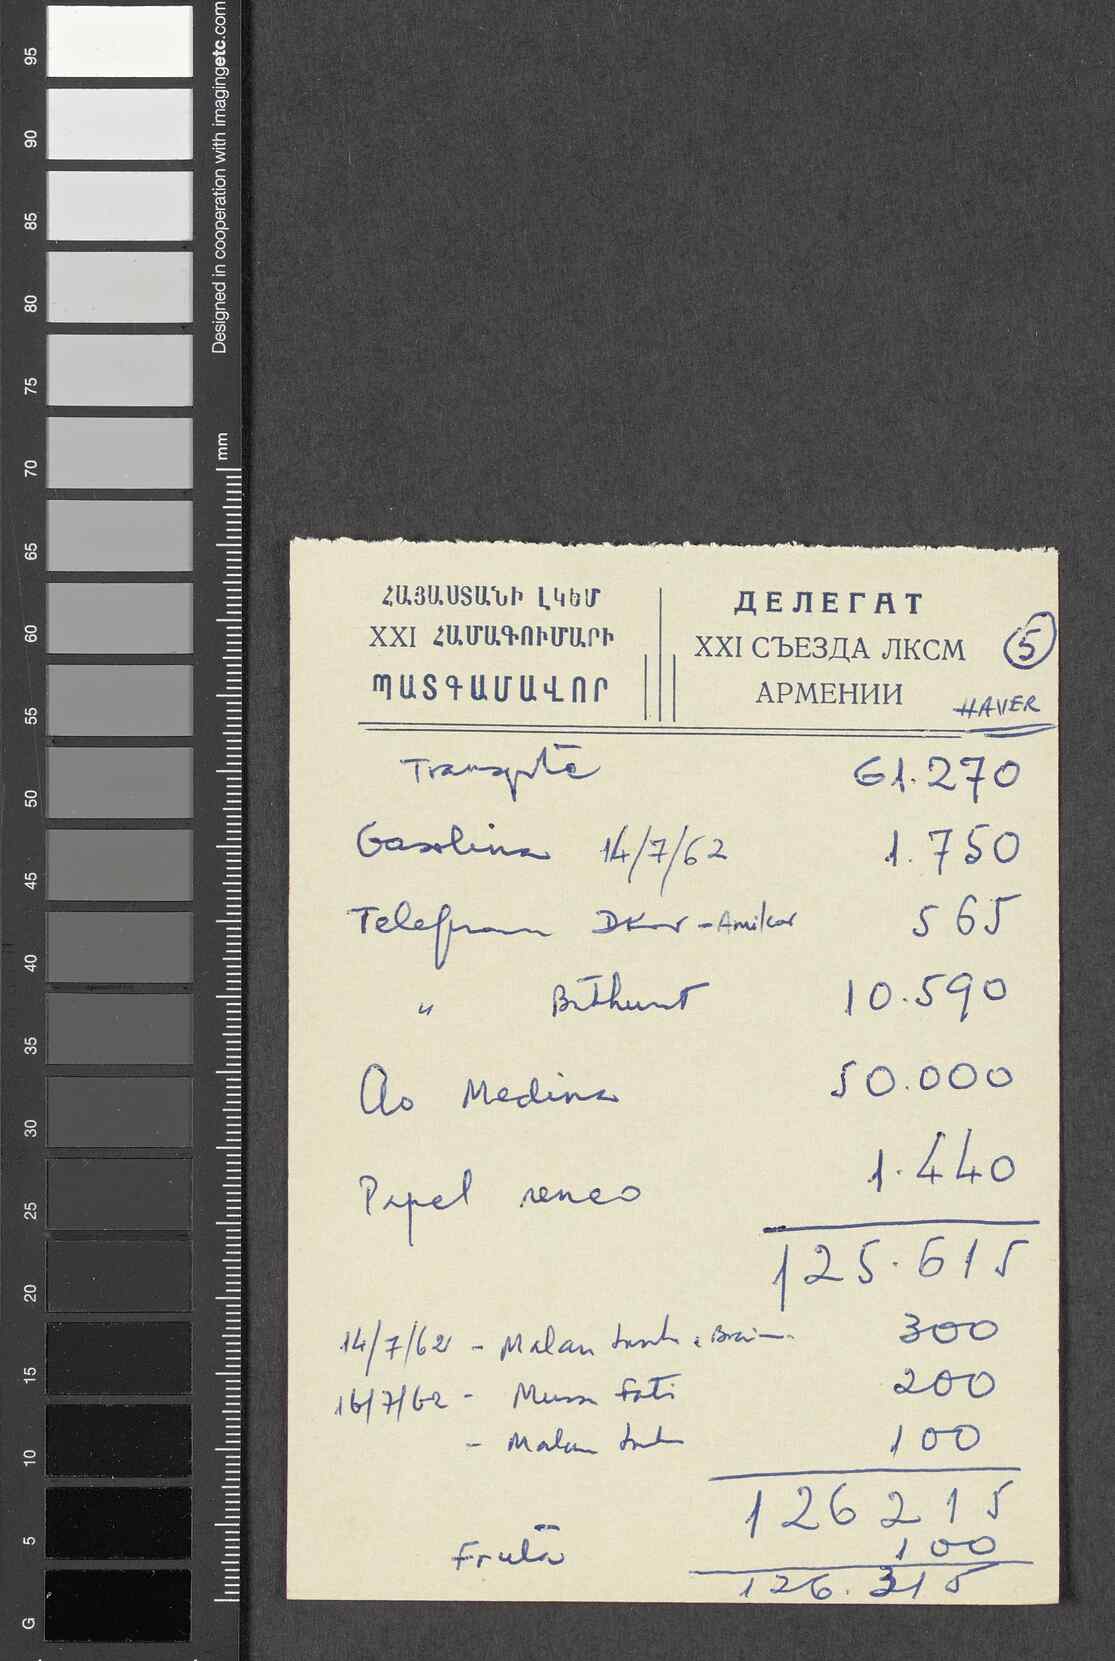 95
90
85
80
75
70
65
60
55
50
45
40
35
30
25
20
15
10
5
G
Designed in cooperation with imagingetc.com
mm
ՀԱՅԱՍՏԱՆԻ ԼԿԵՄ
XXI ՀԱՄԱԳՈՒՄԱՐԻ
ՊԱՏԳԱՄԱՎՈՐ
ДЕЛЕГАТ
XXI СЪЕЗДА ЛКСМ
АРМЕНИИ
5
HAVER
Transpte 61.270
Gasolina 14/7/62 1.750
Telefonou Dkar - Amilcar 565
" 10.590
Ao Medina 50.000
Papel 1.440
125.615
14/7/62 - Malan 300
16/7/62 - Mussa Fati 200
- Malan 100
126215
Fruta 100
126.315